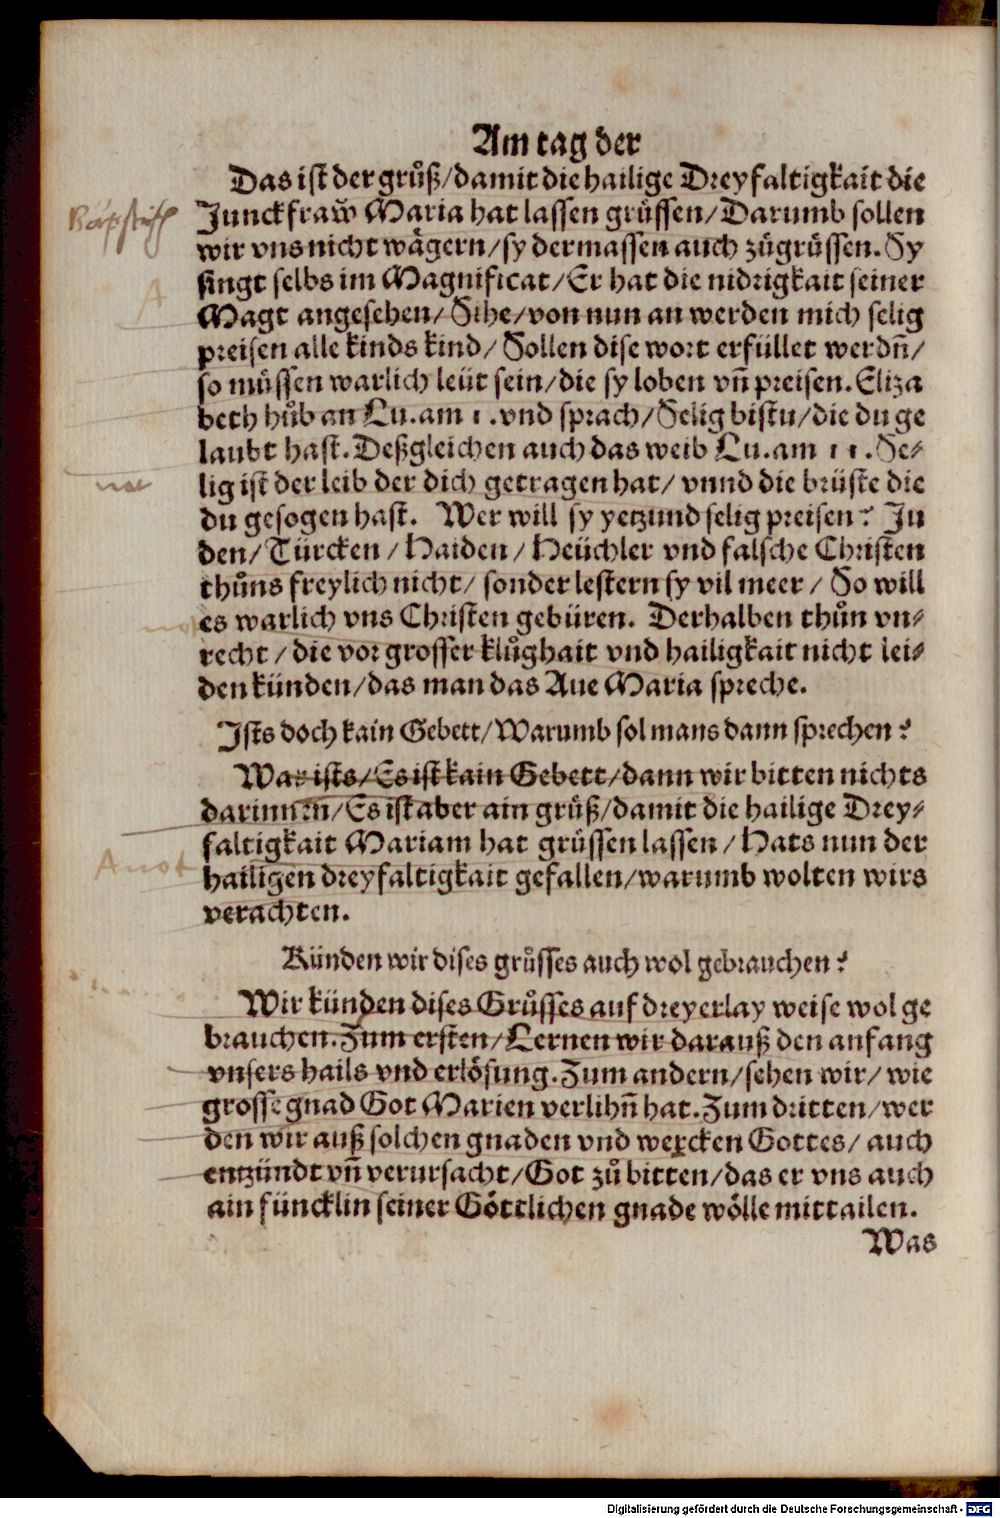 Am tag der
Das ist der grůß/damit die hailige Dreyfaltigkait die
Junckfraw̃ Maria hat lassen grůssen/Darumb sollen
wir vns nicht wägern/sy dermassen auch zůgrůssen. Sy
singt selbs im Magnificat/Er hat die nidrigkait seiner
Magt angesehen/Sihe/von nun an werden mich selig
preisen alle kinds kind/Sollen dise wort erfüllet werdñ/
so můssen warlich leüt sein/die sy loben vñ preisen. Eliza
beth hůb an Lu.am 1.vnd sprach/Selig bistu/die du ge
laubt hast. Deßgleichen auch das weib Lu.am 11.Se⸗
lig ist der leib der dich getragen hat/vnnd die brüste die
du gesogen hast. Wer will sy yetzund selig preisen? Ju
den/Türcken/Haiden/Heüchler vnd falsche Christen
thůns freylich nicht/sonder lestern sy vil meer/So will
es warlich vns Christen gebüren. Derhalben thůn vn⸗
recht/die vor grosser klůghait vnd hailigkait nicht lei⸗
den künden/das man das Aue Maria spreche.
Jsts doch kain Gebett/Warumb sol mans dann sprechen?
War ists/Es ist kain Gebett/dann wir bitten nichts
darinnen/Es ist aber ain grůß/damit die hailige Drey⸗
faltigkait Mariam hat grůssen lassen/Hats nun der
hailigen dreyfaltigkait gefallen/warumb wolten wirs
verachten.
Künden wir dises grůsses auch wol gebrauchen?
Wir künden dises Grůsses auf dreyerlay weise wol ge
brauchen. Zum ersten/Lernen wir darauß den anfang
vnsers hails vnd erlösung. Zum andern/sehen wir/wie
grosse gnad Got Marien verlihñ hat. Zum dritten/wer
den wir auß solchen gnaden vnd wercken Gottes/auch
entzündt vñ verursacht/Got zů bitten/das er vns auch
ain füncklin seiner Göttlichen gnade wölle mittailen.
Was
Bäpstisch
A
not
Digitalisierung gefördert durch die Deutsche Forschungsgemeinschaft - DFG